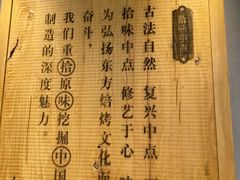 古法自然 复兴中点
拾味中点 修艺于心
为弘扬东方焙烤文化而
奋斗,
我们重拾原味挖掘中国
制造的深度魅力。